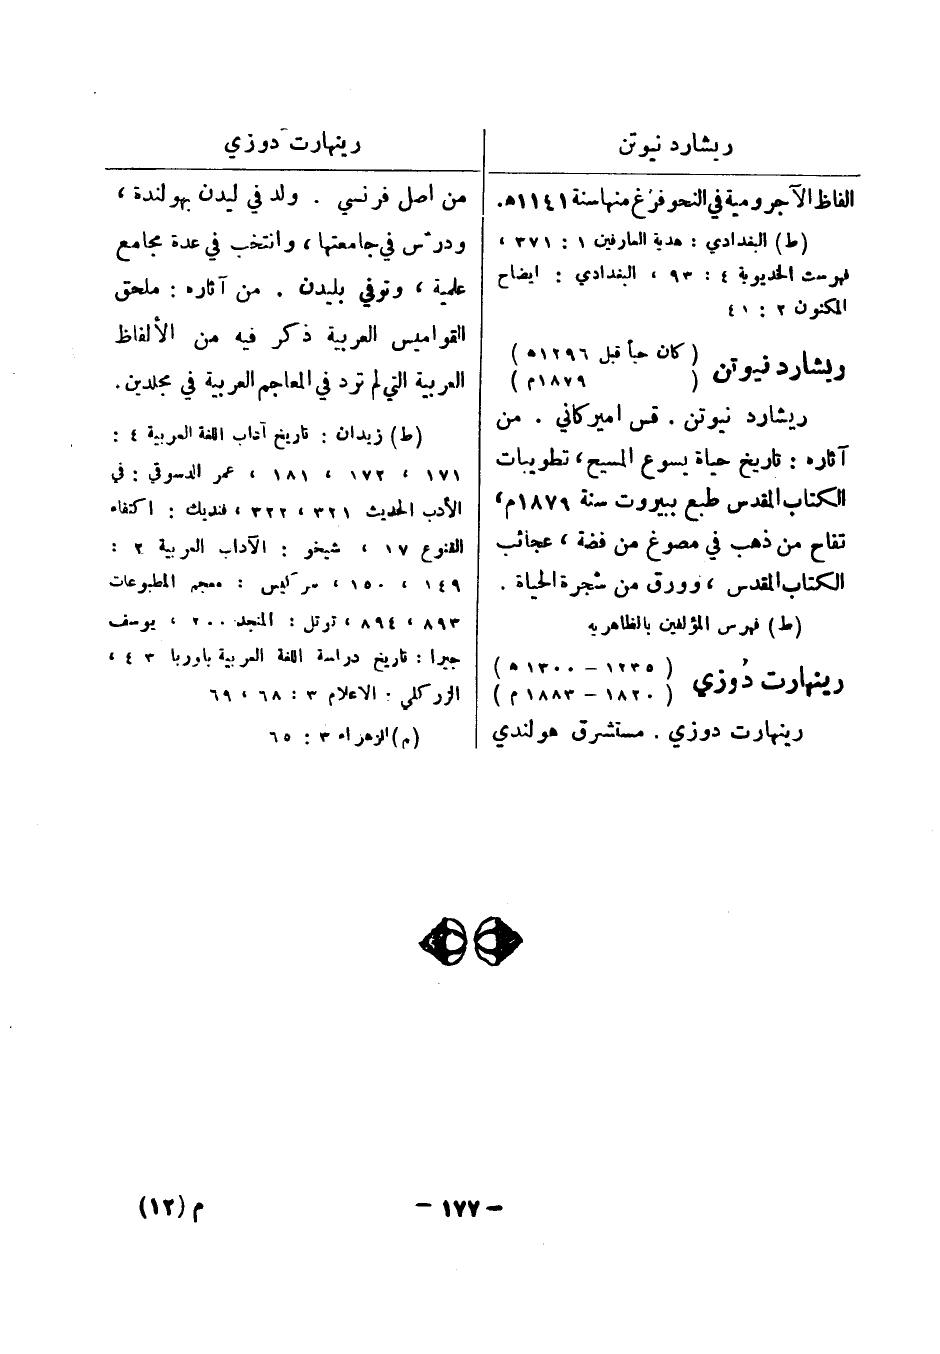 ريشارد نيوتن
الفاظ الآجرومية في النحو فرغ منها سنة ١١٤١ه‍.
(ط) البغدادي : هدية العارفين ١ : ٣٧١ ،
فهرست الخديوية ٤ : ٩٣ ، البغدادي : ايضاح
المكنون ٢ : ٤١
ريشارد نيوتن ( كان حياً قبل ١٢٩٦ ه )
( ١٨٧٩م )
ريشارد نيوتن . قس اميركاني . من
آثاره : تاريخ حياة يسوع المسيح ، تطويبات
الكتاب المقدس طبع ببيروت سنة ١٨٧٩م ،
تفاح من ذهب في مصوغ من فضة ، عجائب
الكتاب المقدس ، وورق من شجرة الحياة .
(ط) فهرس المؤلفين بالظاهرية
رينهارت دُوزي ( ١٢٣٥ – ١٣٠٠ ه )
( ١٨٢٠ – ١٨٨٣ م )
رينهارت دوزي . مستشرق هولندي
رينهارت دوزي
من اصل فرنسي . ولد في ليدن بهولندة ،
ودرّس في جامعتها ، وانتخب في عدة مجامع
علمية ، وتوفي بليدن . من آثاره : ملحق
القواميس العربية ذكر فيه من الألفاظ
العربية التي لم ترد في المعاجم العربية في مجلدين .
(ط) زيدان : تاريخ آداب اللغة العربية ٤ :
١٧١ ، ١٧٢ ، ١٨١ ، عمر الدسوقي : في
الأدب الحديث ٣٢١ ، ٣٢٢ ، فنديك : اكتفاء
القنوع ١٧ ، شيخو : الآداب العربية ٢ :
١٤٩ ، ١٥٠ ، سركيس : معجم المطبوعات
٨٩٣ ، ٨٩٤ ، توتل : المنجد ٢٠٠ ، يوسف
جيرا : تاريخ دراسة اللغة العربية باوربا ٤٣ ،
الزركلي : الاعلام ٣ : ٦٨ ، ٦٩
(م) الزهراء ٣ : ٦٥
– ١٧٧ –
م (١٢)